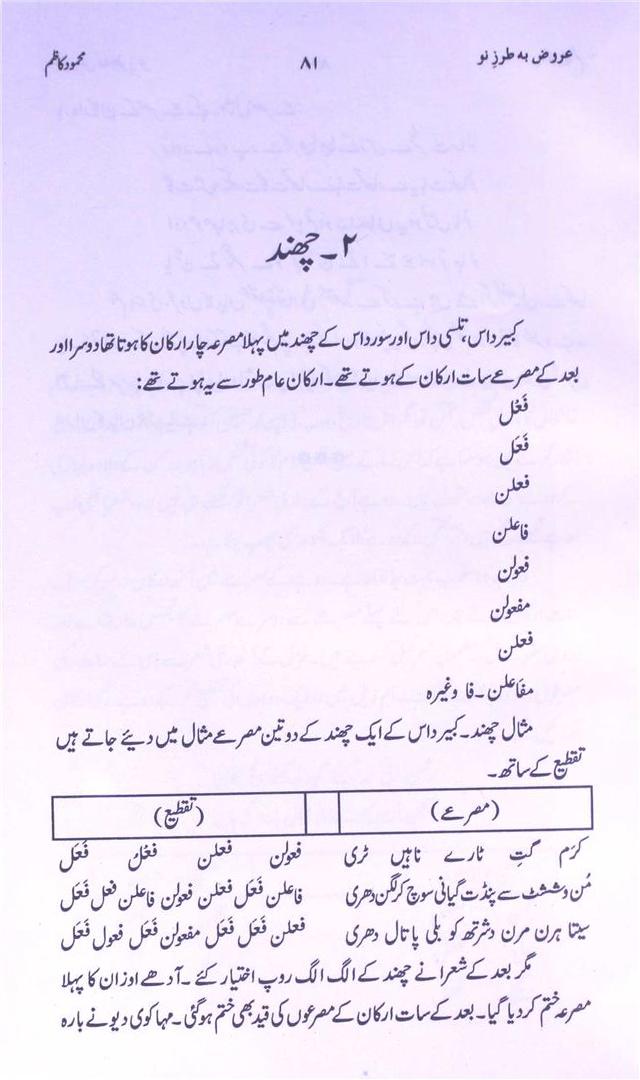 عروض بہ طرزِ نو ۸۱ محمود کاظم
۲۔ چھند
کبیر داس، تلسی داس اور سور داس کے چھند میں پہلا مصرعہ چار ارکان کا ہوتا تھا دوسرا اور
بعد کے مصرعے سات ارکان کے ہوتے تھے۔ ارکان عام طور سے یہ ہوتے تھے:
فَعْل
فَعَل
فعلن
فاعلن
فعولن
مفعولن
فعلن
مفاعلن۔ فا وغیرہ
مثال چھند۔ کبیر داس کے ایک چھند کے دو تین مصرعے مثال میں دیئے جاتے ہیں
تقطیع کے ساتھ۔
(مصرعے) (تقطیع)
کرَم گتِ ٹارے ناہیں ٹری فعولن فعلن فعْلن فَعَل
مُن وششٹ سے پنڈت گیانی سوچ کر لگن دھری فاعلن فَعَل فعلن فعولن فاعلن فعل فَعَل
سیتا ہرن مرن دشرتھ کو بلی پاتال دھری فعلن فَعَل فَعَل مفعولن فَعَل فعول فَعَل
مگر بعد کے شعرا نے چھند کے الگ الگ روپ اختیار کئے۔ آدھے اوزان کا پہلا
مصرعہ ختم کر دیا گیا۔ بعد کے سات ارکان کے مصرعوں کی قید بھی ختم ہو گئی۔ مہا کوی دیو نے بارہ